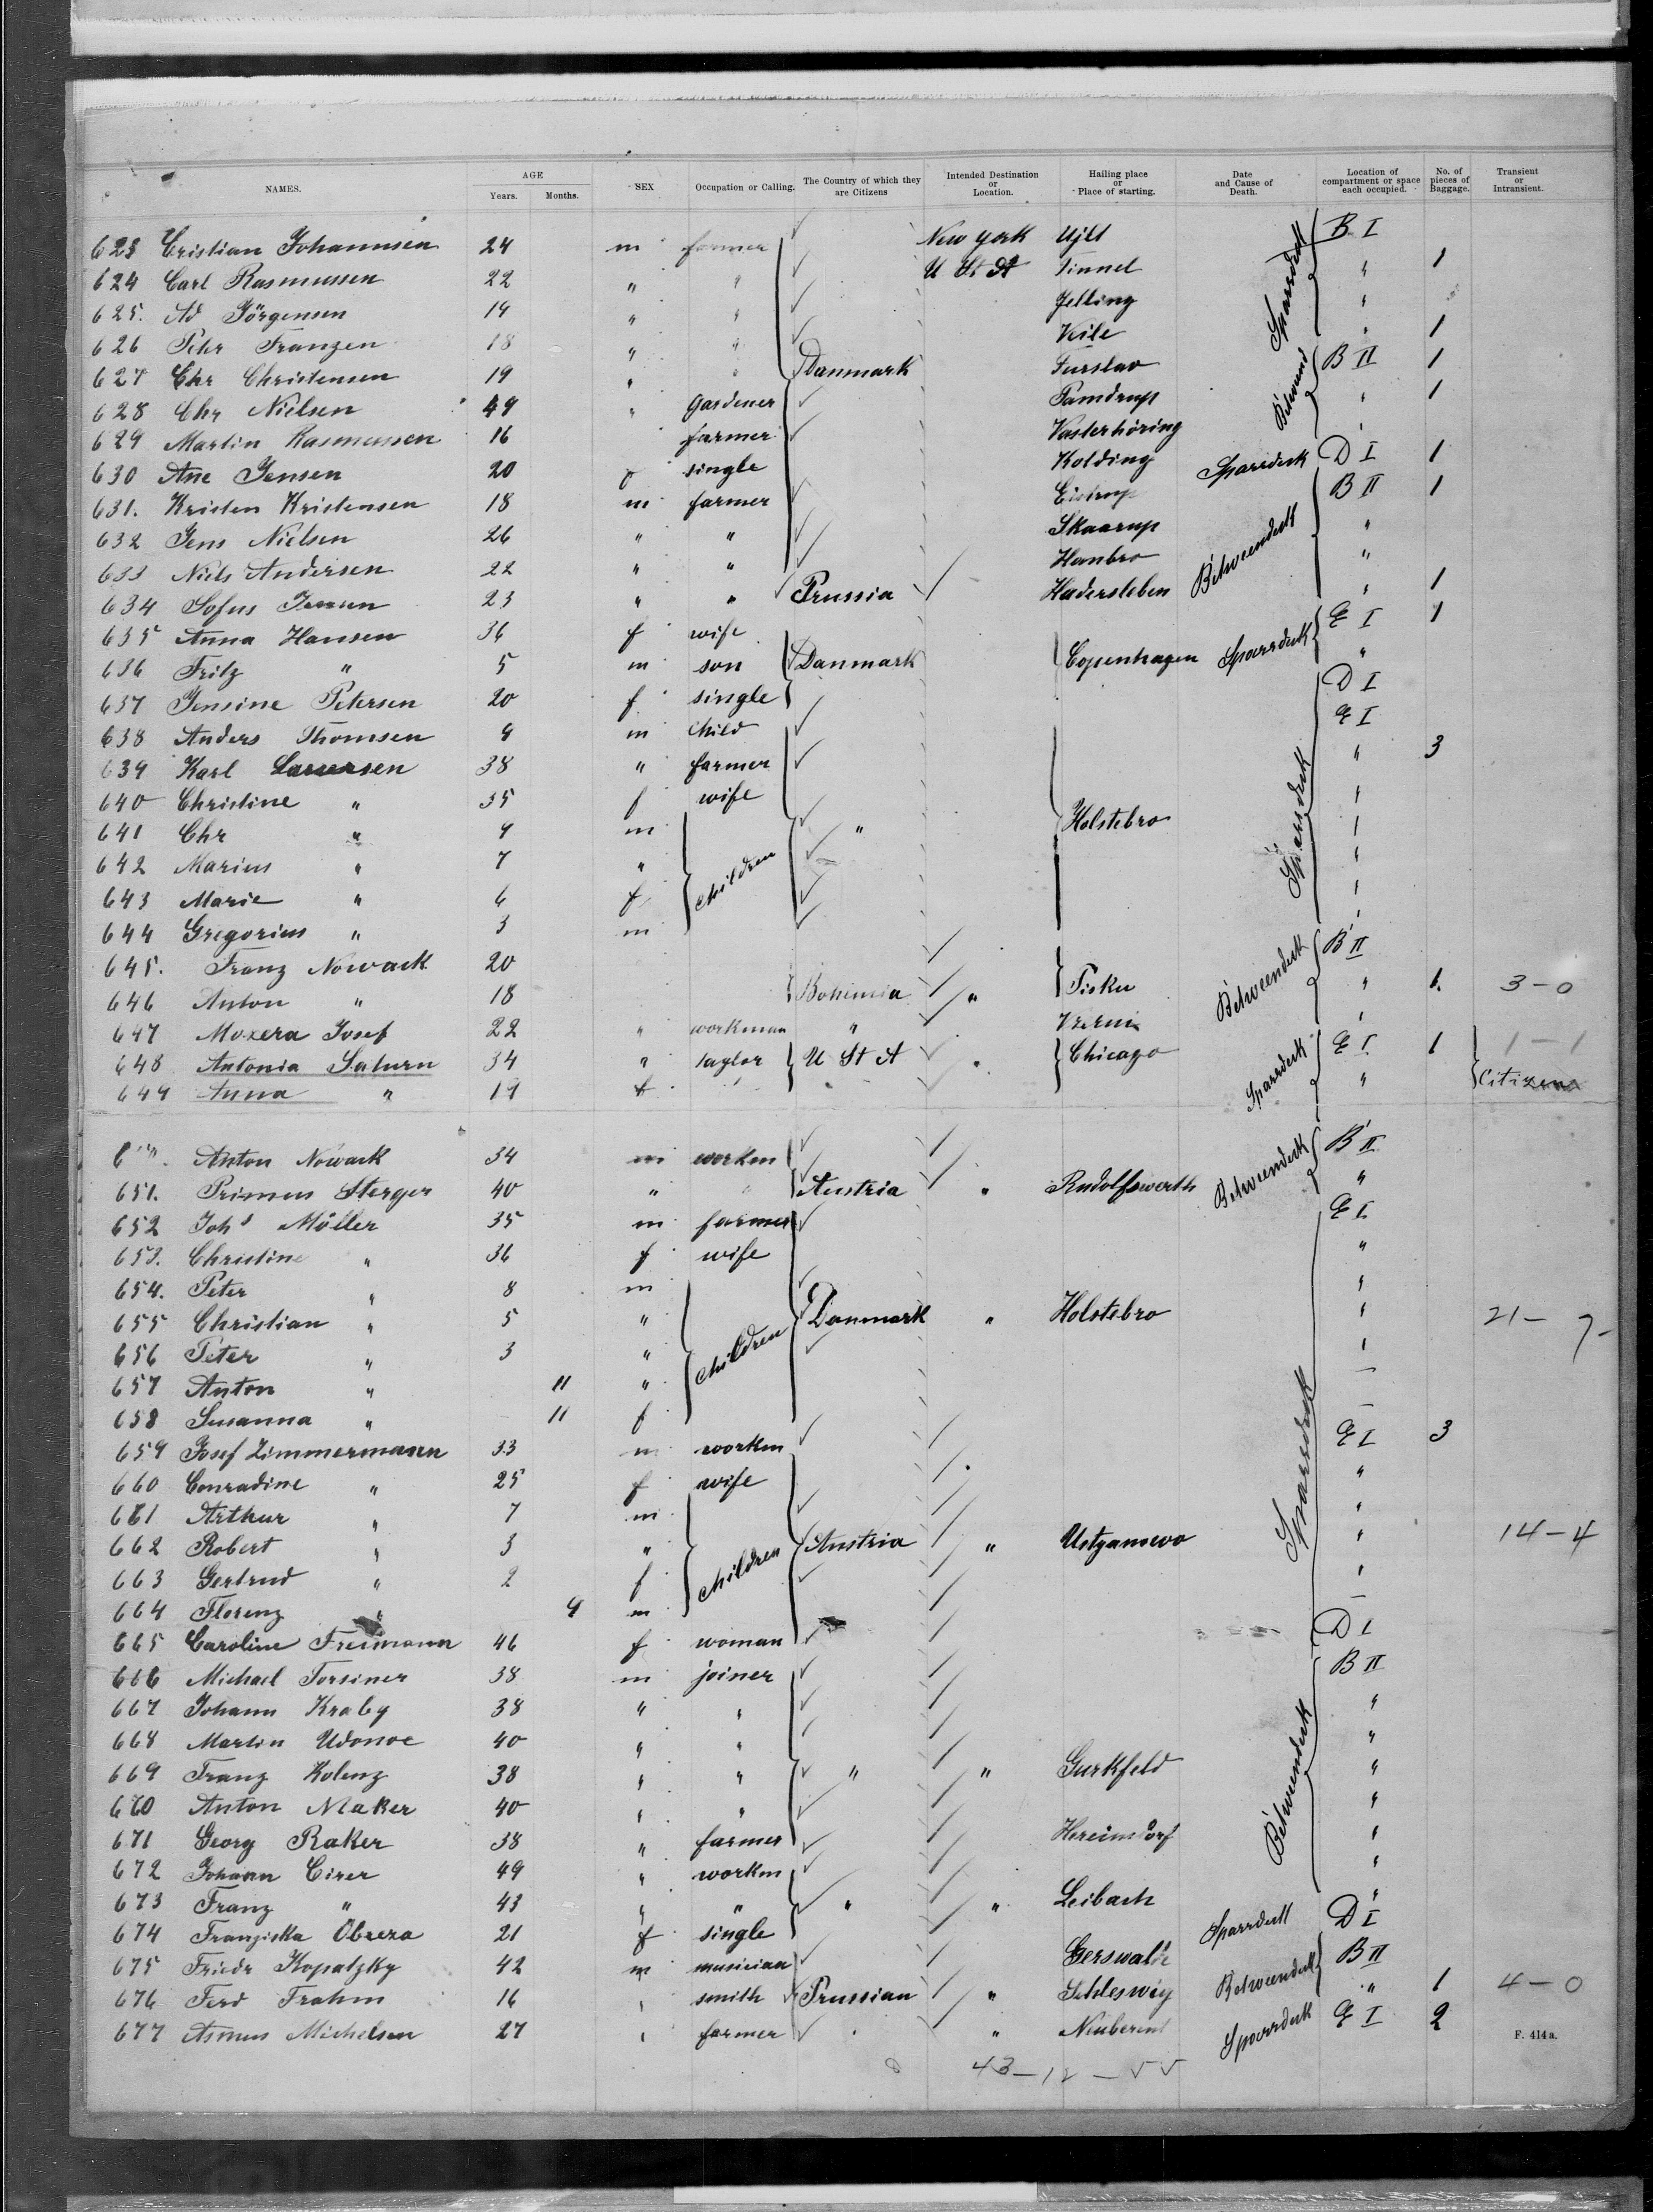 NAMES. AGE Years. Months. SEX Occupation or Calling. The Country of which they are Citizens Intended Destination or Location. Hailing place or Place of starting. Date and Cause of Death. Location of compartment or space each occupied. No. of pieces of Baggage. Transient or Intransient.
623 Cristian Johannsen 24 m farmer New York Ujlt Sparrdeck B I
624 Carl Rasmussen 22 " " U St A Tinnel " 1
625. Ad Jörgensen 19 " " Jelling "
626 Pehr Franzen 18 " " Veile " 1
627 Chr Christensen 19 " " Danmark Furslav B II 1
628 Chr Nielsen 49 " gardener Pamdrup " 1
629 Martin Rasmussen 16 farmer Vasterhöring "
630 Ane Jensen 20 f single Kolding Sparrdeck D I 1
631. Kristen Kristensen 18 m farmer Eistrup B II 1
632 Jens Nielsen 26 " " Skaarup Betweendeck "
633 Niels Andersen 22 " " Hanbro "
634 Sofus Jensen 23 " " Prussia Hadersleben " 1
635 Anna Hansen 36 f wife E I 1
636 Fritz " 5 m son Danmark Copenhagen Sparrdeck "
637 Jensine Petersen 20 f single D I
638 Anders Thomsen 9 m child E I
639 Karl Laursen 38 " farmer " 3
640 Christine " 35 f wife "
641 Chr " 9 m " Holstebro Sparrdeck "
642 Marius " 7 " children "
643 Marie " 6 f "
644 Gregorius " 3 m "
645. Franz Nowack 20 B II
646 Anton " 18 Bohimia " Pisku Betweendeck " 1. 3 - 0
647 Moxera Josef 22 " workman " "
648 Antonia Saturn 34 " taylor U St A " Chicago Sparrdeck E I 1 1 - 1
649 Anna " 19 f " Citizens
Anton Nowack 34 m workm B II
651. Primus Sterger 40 " " Austria " Rudolfswerth Betweendeck "
652 Johs Möller 35 m farmer E I
653. Christine " 36 f wife "
654. Peter " 8 m "
655 Christian " 5 " Danmark " Holstebro " 21 - 7 -
656 Peter " 3 " children "
657 Anton " 11 "
658 Susanna " 11 f
659 Josef Zimmermann 33 m workm E I 3
660 Conradine " 25 f wife "
661 Arthur " 7 m Sparrdeck "
662 Robert " 3 " Austria " Ustyanowo " 14 - 4
663 Gertrud " 2 f children "
664 Florenz " 9 m
665 Caroline Freimann 46 f woman D I
666 Michael Torsiner 38 m joiner B II
667 Johann Kraby 38 " " "
668 Martin Udonoe 40 " " "
669 Franz Kolenz 38 " " " " Gurkfeld Betweendeck "
670 Anton Maker 40 " " "
671 Georg Raker 38 " farmer Hereindorf "
672 Johann Cirer 49 " workm "
673 Franz " 43 " " " " Leibach "
674 Franziska Obreza 21 f single Sparrdeck D I
675 Friedr Kopatzky 42 m musician Gerswalde B II
676 Ferd Frahm 16 " smith Prussian " Schleswig Betweendeck " 1 4 - 0
677 Asmus Michelsen 27 " farmer " Sparrdeck E I 2
F. 414a.
43 - 12 - 55